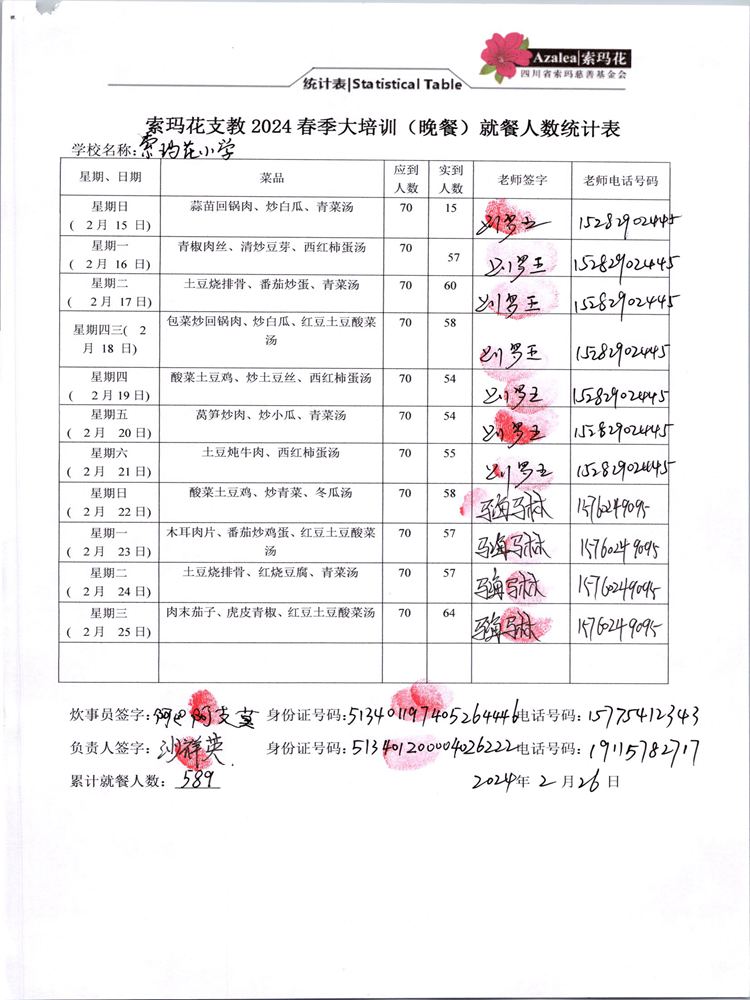 Azalea|索玛花
四川省索玛慈善基金会
统计表|Statistical Table
索玛花支教 2024 春季大培训（晚餐）就餐人数统计表
学校名称:索玛花小学
星期、日期 菜品 应到人数 实到人数 老师签字 老师电话号码
星期日 ( 2月 15 日) 蒜苗回锅肉、炒白瓜、青菜汤 70 15 15282902445
星期一 ( 2月 16 日) 青椒肉丝、清炒豆芽、西红柿蛋汤 70 57 15282902445
星期二 ( 2月 17日) 土豆烧排骨、番茄炒蛋、青菜汤 70 60 15282902445
星期四三( 2月 18 日) 包菜炒回锅肉、炒白瓜、红豆土豆酸菜汤 70 58 15282902445
星期四 ( 2月19日) 酸菜土豆鸡、炒土豆丝、西红柿蛋汤 70 54 15282902445
星期五 ( 2月 20日) 莴笋炒肉、炒小瓜、青菜汤 70 54 15282902445
星期六 ( 2月 21日) 土豆炖牛肉、西红柿蛋汤 70 55 15282902445
星期日 ( 2月 22日) 酸菜土豆鸡、炒青菜、冬瓜汤 70 58 马海马林 15760249095
星期一 ( 2月 23日) 木耳肉片、番茄炒鸡蛋、红豆土豆酸菜汤 70 57 马海马林 15760249095
星期二 ( 2月 24日) 土豆烧排骨、红烧豆腐、青菜汤 70 57 马海马林 15760249095
星期三 ( 2月 25日) 肉末茄子、虎皮青椒、红豆土豆酸菜汤 70 64 马海马林 15760249095
炊事员签字: 身份证号码:513401197405264446电话号码: 15775412343
负责人签字:沙祥英 身份证号码:513401200004026222电话号码: 19115782717
累计就餐人数: 589 2024年 2 月 26 日